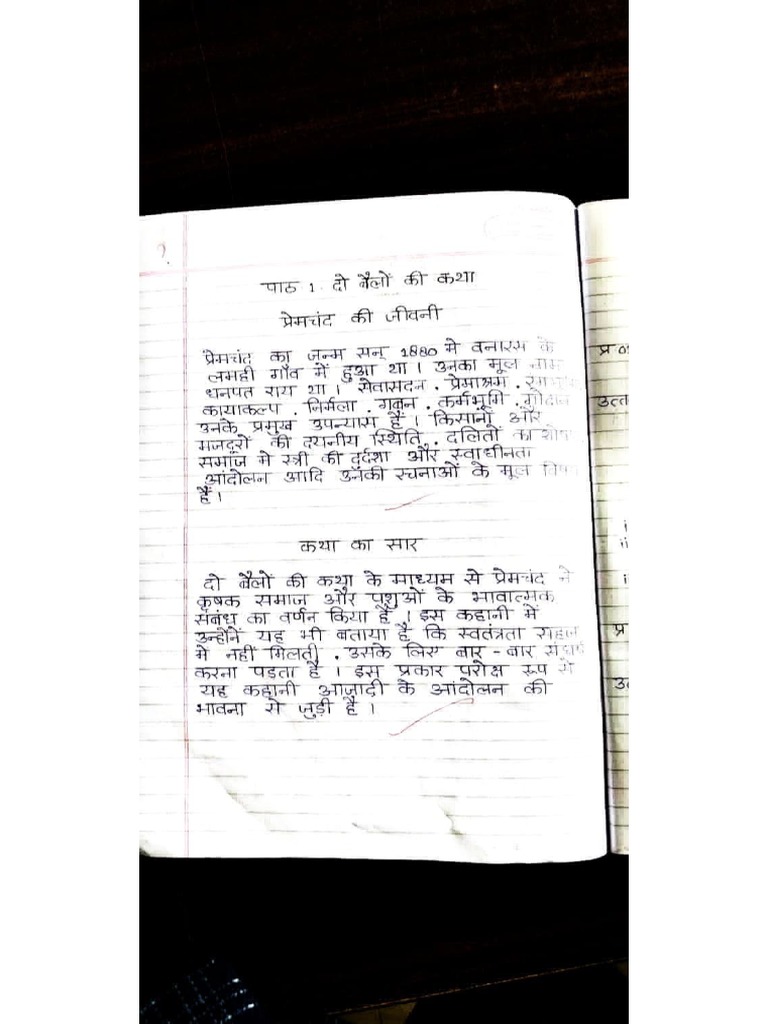 पाठ 1. दो बैलों की कथा
प्रेमचंद की जीवनी
प्रेमचंद का जन्म सन् 1880 मे बनारस के
लमही गाँव में हुआ था। उनका मूल नाम
धनपत राय था। सेवासदन . प्रेमाश्रम .
कायाकल्प . निर्मला . गबन . कर्मभूमि . गोदान
उनके प्रमुख उपन्यास हैं। किसानों और
मजदूरों की दयनीय स्थिति . दलितों का
समाज मे स्त्री की दुर्दशा और स्वाधीनता
आंदोलन आदि उनकी रचनाओं के मूल
हैं।
कथा का सार
दो बैलों की कथा के माध्यम से प्रेमचंद ने
कृषक समाज और पशुओं के भावात्मक
संबंध का वर्णन किया है। इस कहानी में
उन्होंनें यह भी बताया है कि स्वतंत्रता सहज
मे नहीं मिलती . उसके लिए बार - बार संघर्ष
करना पड़ता है। इस प्रकार परोक्ष रूप में
यह कहानी आज़ादी के आंदोलन की
भावना से जुड़ी है।
प्र
उत्त
i
ii
i
प्र
उ